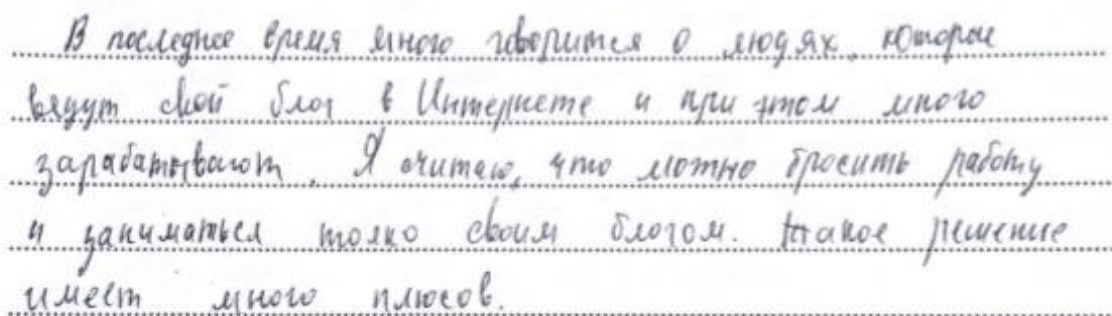 В последнее время много говорится о людях, которые
вядут свой блог в Интернете и при этом много
зарабатывают. Я считаю, что можно бросить работу
и заниматься толко своим блогом. Такое решение
имеет много плюсов.